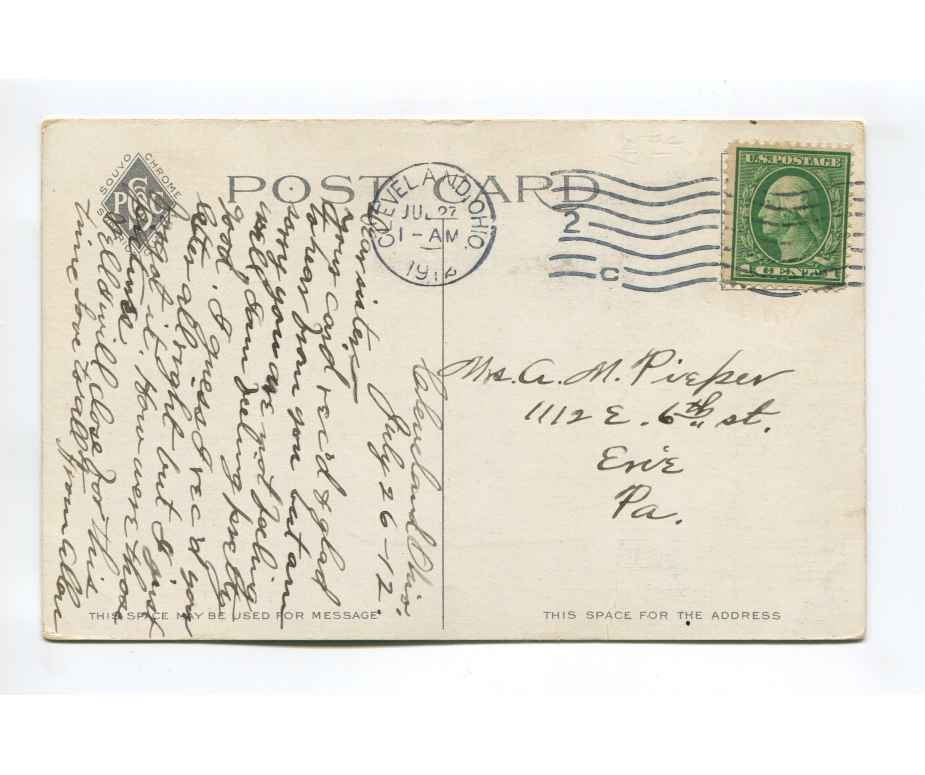 SOUVO CHROME
POST CARD
CLEVELAND, OHIO.
JUL 27
1-AM
191
2
C
U.S. POSTAGE
1 CENT 1
Cleveland Ohio.
July 26-12.
Dear sister,
Your card rec'd & glad
to hear from you but am
sorry you are not feeling
well, I am feeling pretty
good. I guess I rec'd your
letter all right but I just
forgot it. How were those
Well I will close for this
time love to all from
Mrs. A. M. Pieper
1112 E. 6th st.
Erie
Pa.
THIS SPACE MAY BE USED FOR MESSAGE
THIS SPACE FOR THE ADDRESS